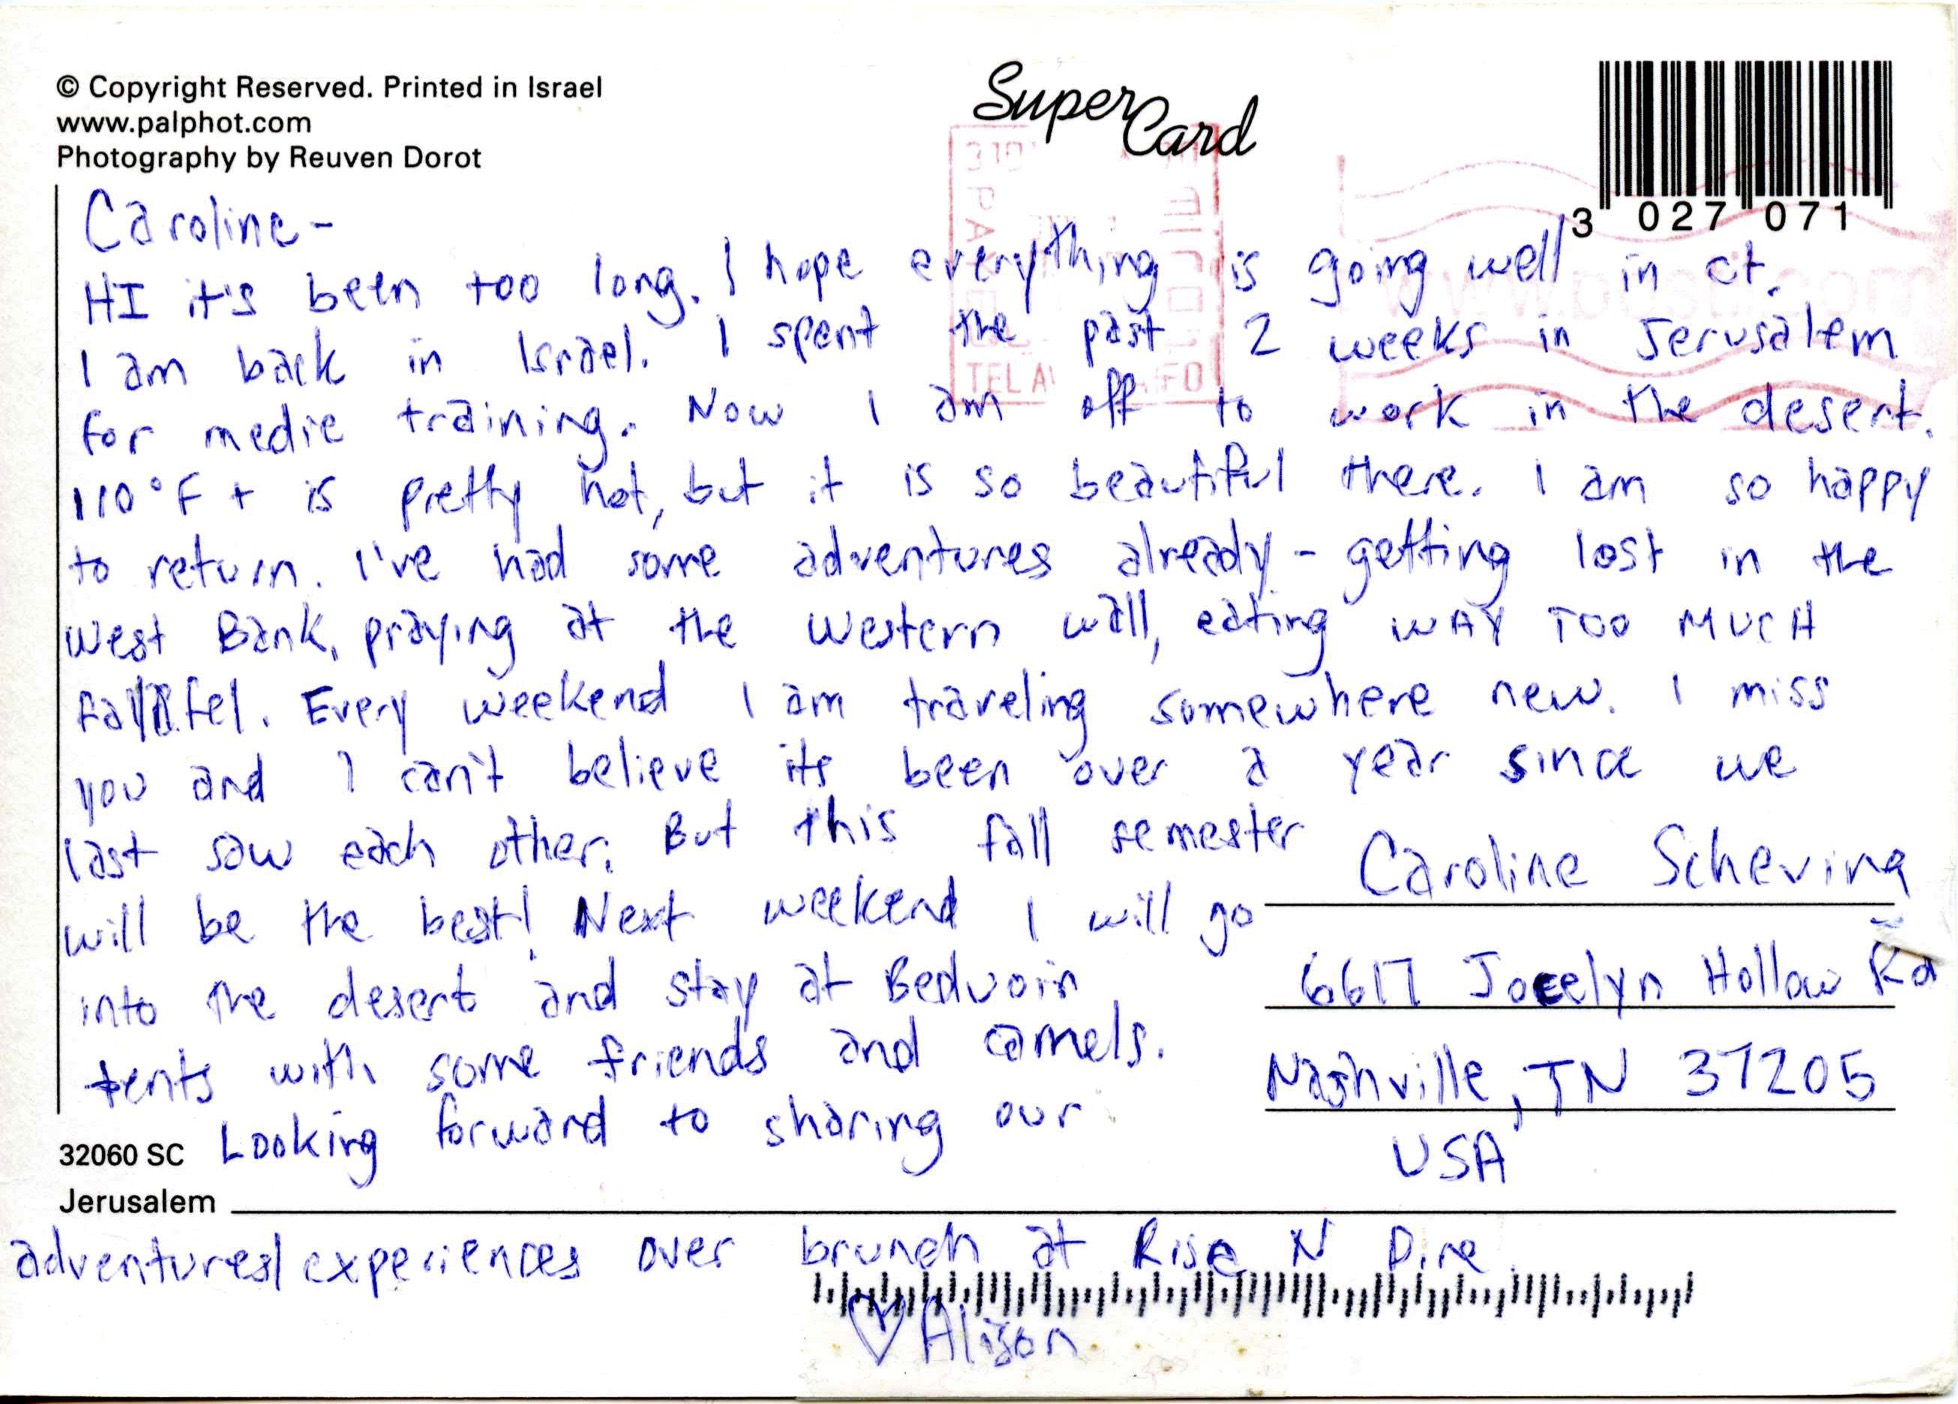 © Copyright Reserved. Printed in Israel
www.palphot.com
Photography by Reuven Dorot
Super Card
3 027071
Caroline-
HI it's been too long. I hope everything is going well in ct.
I am back in Israel. I spent the past 2 weeks in Jerusalem
for medic training. Now I am off to work in the desert.
110°F + is pretty hot, but it is so beautiful there. I am so happy
to return. I've had some adventures already - getting lost in the
West Bank, praying at the Western wall, eating WAY TOO MUCH
falafel. Every weekend I am traveling somewhere new. I miss
you and I can't believe its been over a year since we
last saw each other. But this fall semester
will be the best! Next weekend I will go
into the desert and stay at Beduoin
tents with some friends and camels.
Looking forward to sharing our
adventures/experiences over brunch at Rise N Dine
♡ Alison
Caroline Scheving
6617 Jocelyn Hollow Rd
Nashville, TN 37205
USA
32060 SC
Jerusalem
TEL A